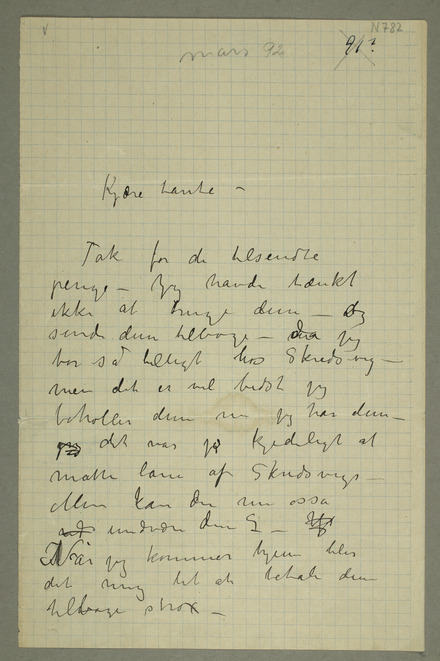 N 782
mars 92
91?
Kjære tante –
Tak for de tilsendte
penge – Jeg havde tænkt
ikke at bruge dem – og
sende dem tilbage – da jeg
bor så billigt hos Skredsvig –
men det er vel bedst jeg
beholler dem nu jeg har dem –
det var jo kjedeligt at
måtte lane af Skredsvigs –
Men kan du nu også
undvære dem? –
Når jeg kommer hjem blir
det mig let at betale dem
tilbage strax –